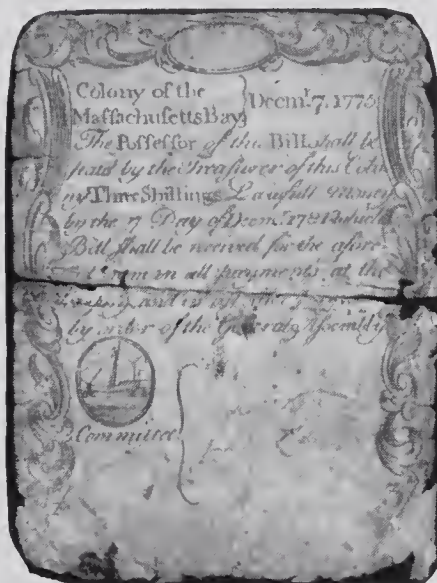 Colony of the
Massachusetts Bay } Decemr. 7. 1775.
The Possessor of this Bill shall be
paid by the Treasurer of this Colo
ny Three Shillings Lawfull Money
by the 7 Day of Decemr. 1781 which
Bill shall be received for the afore
sum in all payments at the
Treasury and in all other
by order of the General Assembly
Committee